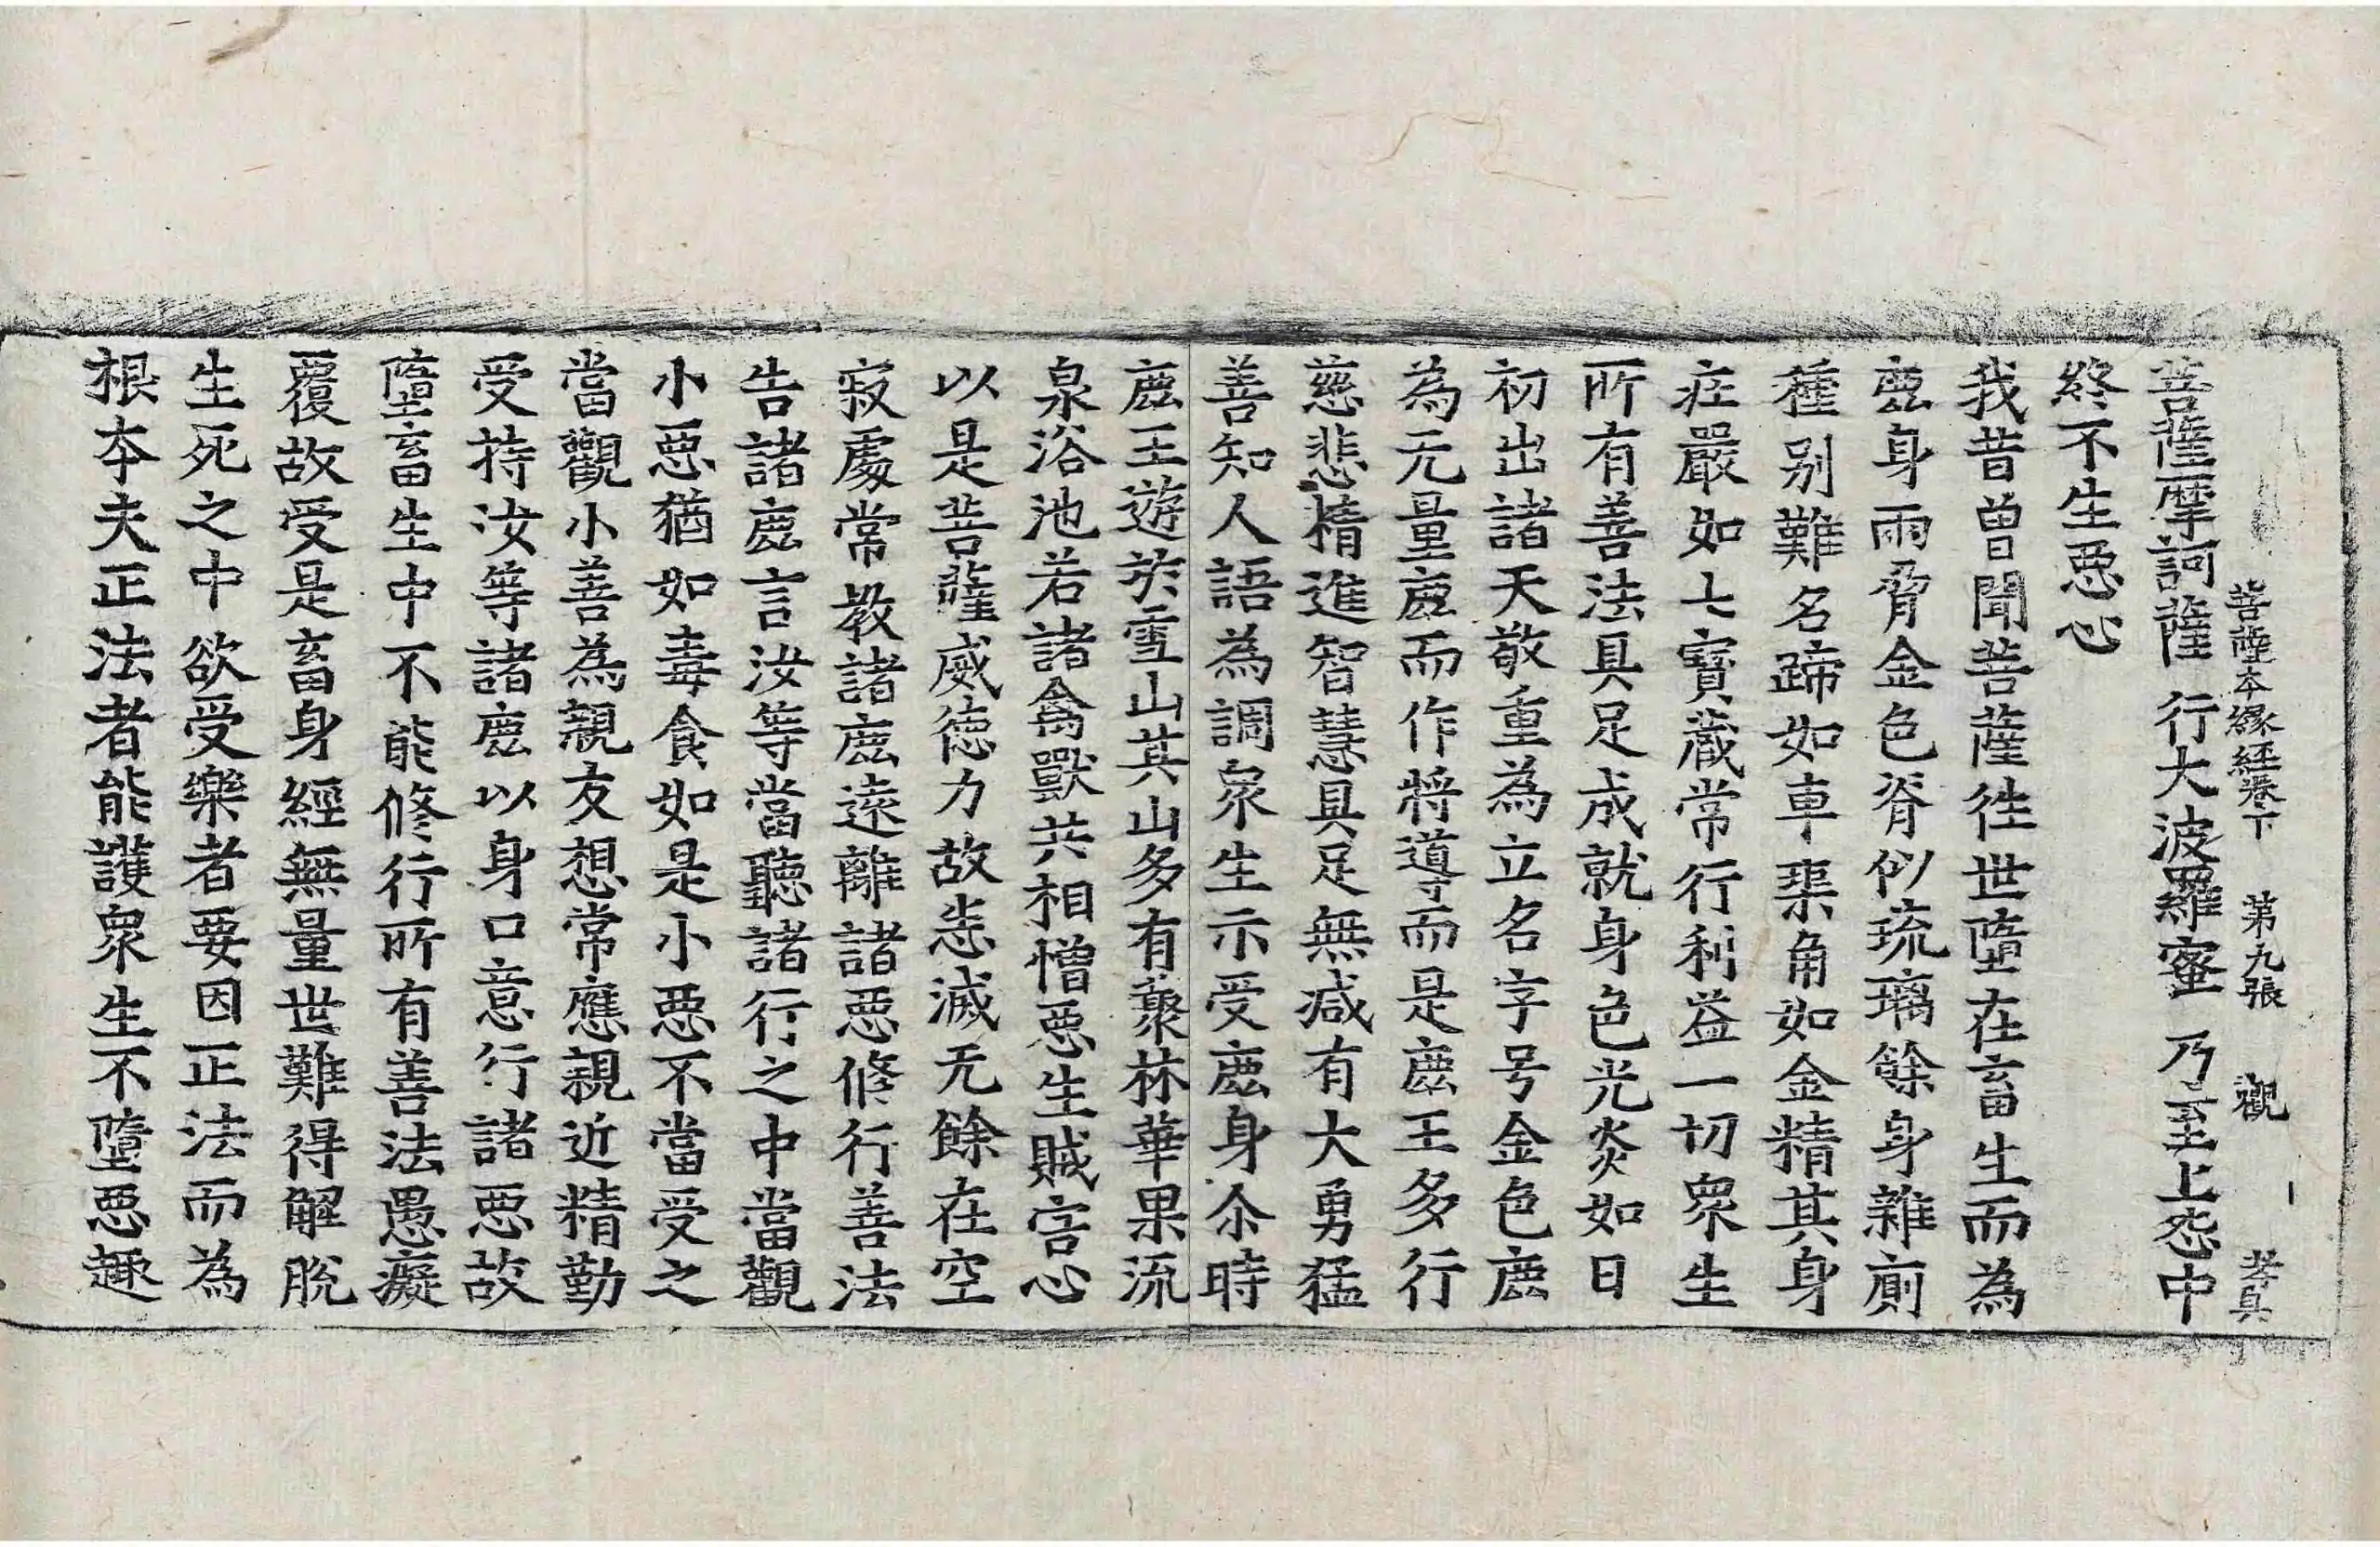 菩薩本緣經卷下 第九張 觀
菩薩摩訶薩 行大波羅蜜 乃至上怨中
終不生惡心
我昔曾聞菩薩徃世墮在畜生而為
鹿身兩脅金色脊似琉璃餘身雜廁
種别難名蹄如車𤦲角如金精其身
莊嚴如七寶藏常行利益一切衆生
所有善法具足成就身色光炎如日
初出諸天敬重為立名字号金色鹿
為无量鹿而作將導而是鹿王多行
慈悲精進智慧具足無減有大勇猛
善知人語為調衆生示受鹿身尒時
鹿王遊於雪山其山多有藂林華果流
泉浴池若諸禽獸共相憎惡生賊害心
以是菩薩威德力故悉滅无餘在空
寂處常教諸鹿遠離諸惡修行善法
告諸鹿言汝等當聽諸行之中當觀
小惡猶如毒食如是小惡不當受之
當觀小善為親友想常應親近精勤
受持汝等諸鹿以身口意行諸惡故
墮畜生中不能修行所有善法愚癡
覆故受是畜身經無量世難得解脫
生死之中欲受樂者要因正法而為
根本夫正法者能護衆生不墮惡趣